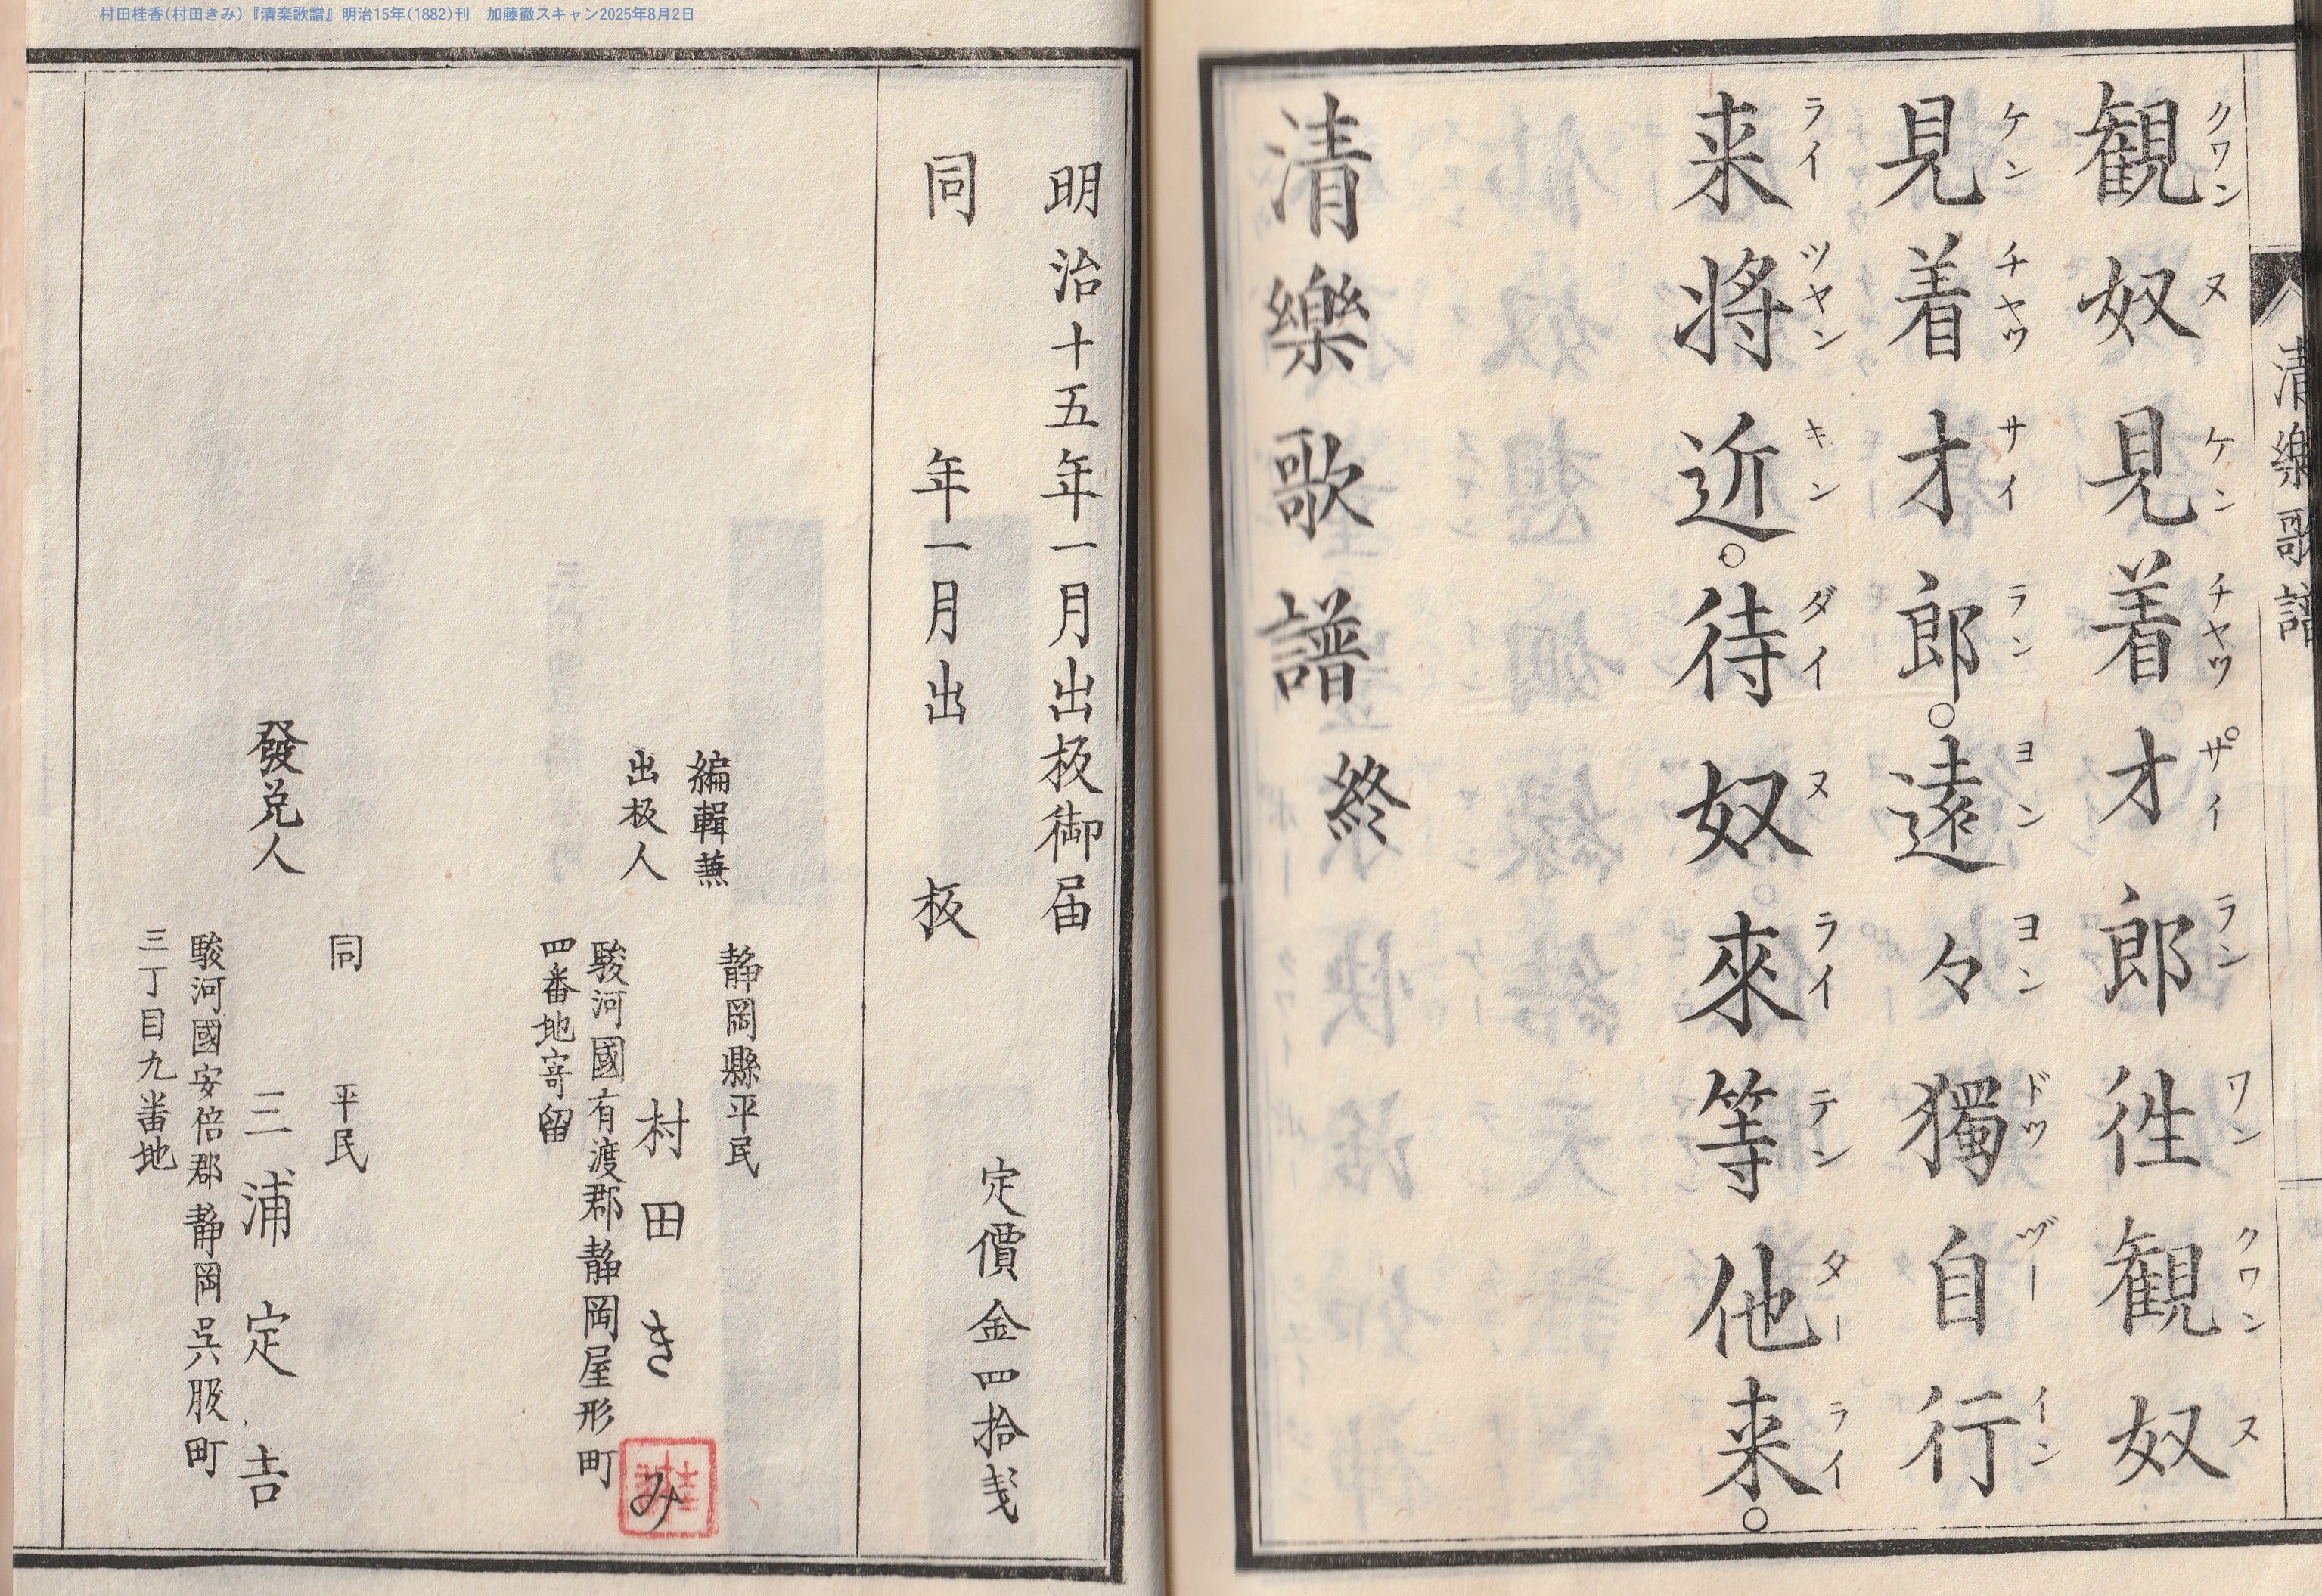 村田桂香(村田きみ)『清楽歌譜』明治15年(1882)刊　加藤徹スキャン2025年8月2日
清樂歌譜
観奴見着才郎徃観奴
クワン ヌ ケン チヤツ サ゚イ ラン ワン クワン ヌ
見着才郎。遠々獨自行
ケン チヤツ サイ ラン ヨン ヨン ドツ ヅー イン
来将近。待奴來等他来。
ライ ツヤン キン ダイ ヌ ライ テン ター ライ
清樂歌譜終
明治十五年一月出板御届
同年一月出板
定價金四拾戔
静岡縣平民
編輯兼
出板人
村田きみ
駿河國有渡郡静岡屋形町
四番地寄留
同平民
發兌人
三浦定吉
駿河國安倍郡静岡呉服町
三丁目九番地